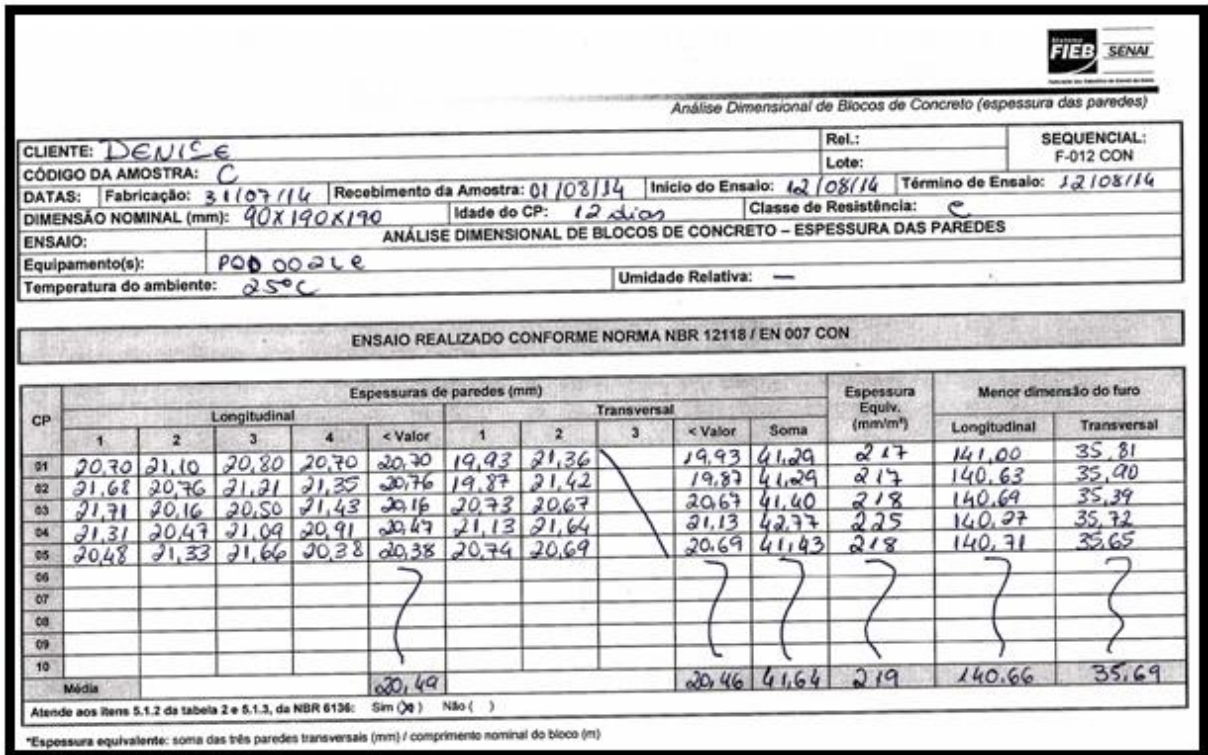 Sistema
FIEB SENAI
Análise Dimensional de Blocos de Concreto (espessura das paredes)
CLIENTE: DENISE Rel.: SEQUENCIAL:
CÓDIGO DA AMOSTRA: C Lote: F-012 CON
DATAS: Fabricação: 31/07/14 Recebimento da Amostra: 01/08/14 Início do Ensaio: 12/08/14 Término de Ensaio: 12/08/14
DIMENSÃO NOMINAL (mm): 90X190X190 Idade do CP: 12 dias Classe de Resistência: C
ENSAIO: ANÁLISE DIMENSIONAL DE BLOCOS DE CONCRETO – ESPESSURA DAS PAREDES
Equipamento(s):
Temperatura do ambiente: 25°C Umidade Relativa: —
ENSAIO REALIZADO CONFORME NORMA NBR 12118 / EN 007 CON
CP Espessuras de paredes (mm) Espessura Equiv. (mm/m*) Menor dimensão do furo
Longitudinal Transversal Longitudinal Transversal
1 2 3 4 < Valor 1 2 3 < Valor Soma
01 20,70 21,10 20,80 20,70 20,70 19,93 21,36 19,93 41,29 217 141,00 35,81
02 21,68 20,76 21,21 21,35 20,76 19,87 21,42 19,87 41,29 217 140,63 35,90
03 21,71 20,16 20,50 21,43 20,16 20,73 20,67 20,67 41,40 218 140,69 35,39
04 21,31 20,47 21,09 20,91 20,47 21,13 21,64 21,13 42,77 225 140,27 35,72
05 20,48 21,33 21,66 20,38 20,38 20,74 20,69 20,69 41,43 218 140,71 35,65
06
07
08
09
10
Média 20,49 20,46 41,64 219 140,66 35,69
Atende aos itens 5.1.2 da tabela 2 e 5.1.3, da NBR 6136: Sim (X) Não ( )
*Espessura equivalente: soma das três paredes transversais (mm) / comprimento nominal do bloco (m)